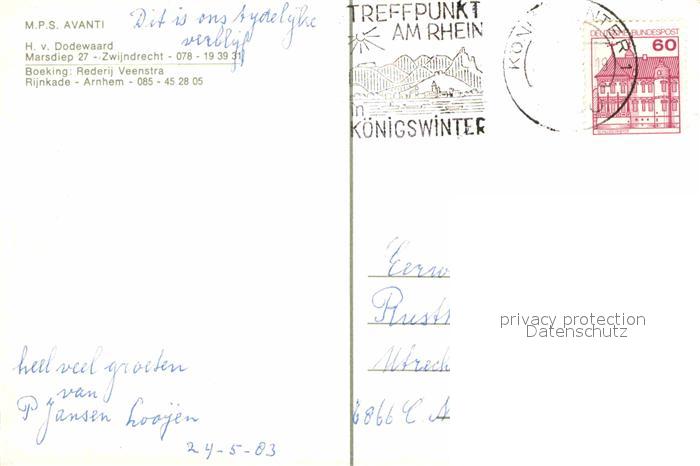 M.P.S. AVANTI
Dit is ons tydelijke
verblijf
H. v. Dodewaard
Marsdiep 27 - Zwijndrecht - 078 - 19 39 31
Boeking: Rederij Veenstra
Rijnkade - Arnhem - 085 - 45 28 05
TREFFPUNKT
AM RHEIN
in
KÖNIGSWINTER
KÖNIGSWINTER 1
DEUTSCHE BUNDESPOST
60
privacy protection
Datenschutz
heel veel groeten
van
P Jansen Looijen
24-5-83